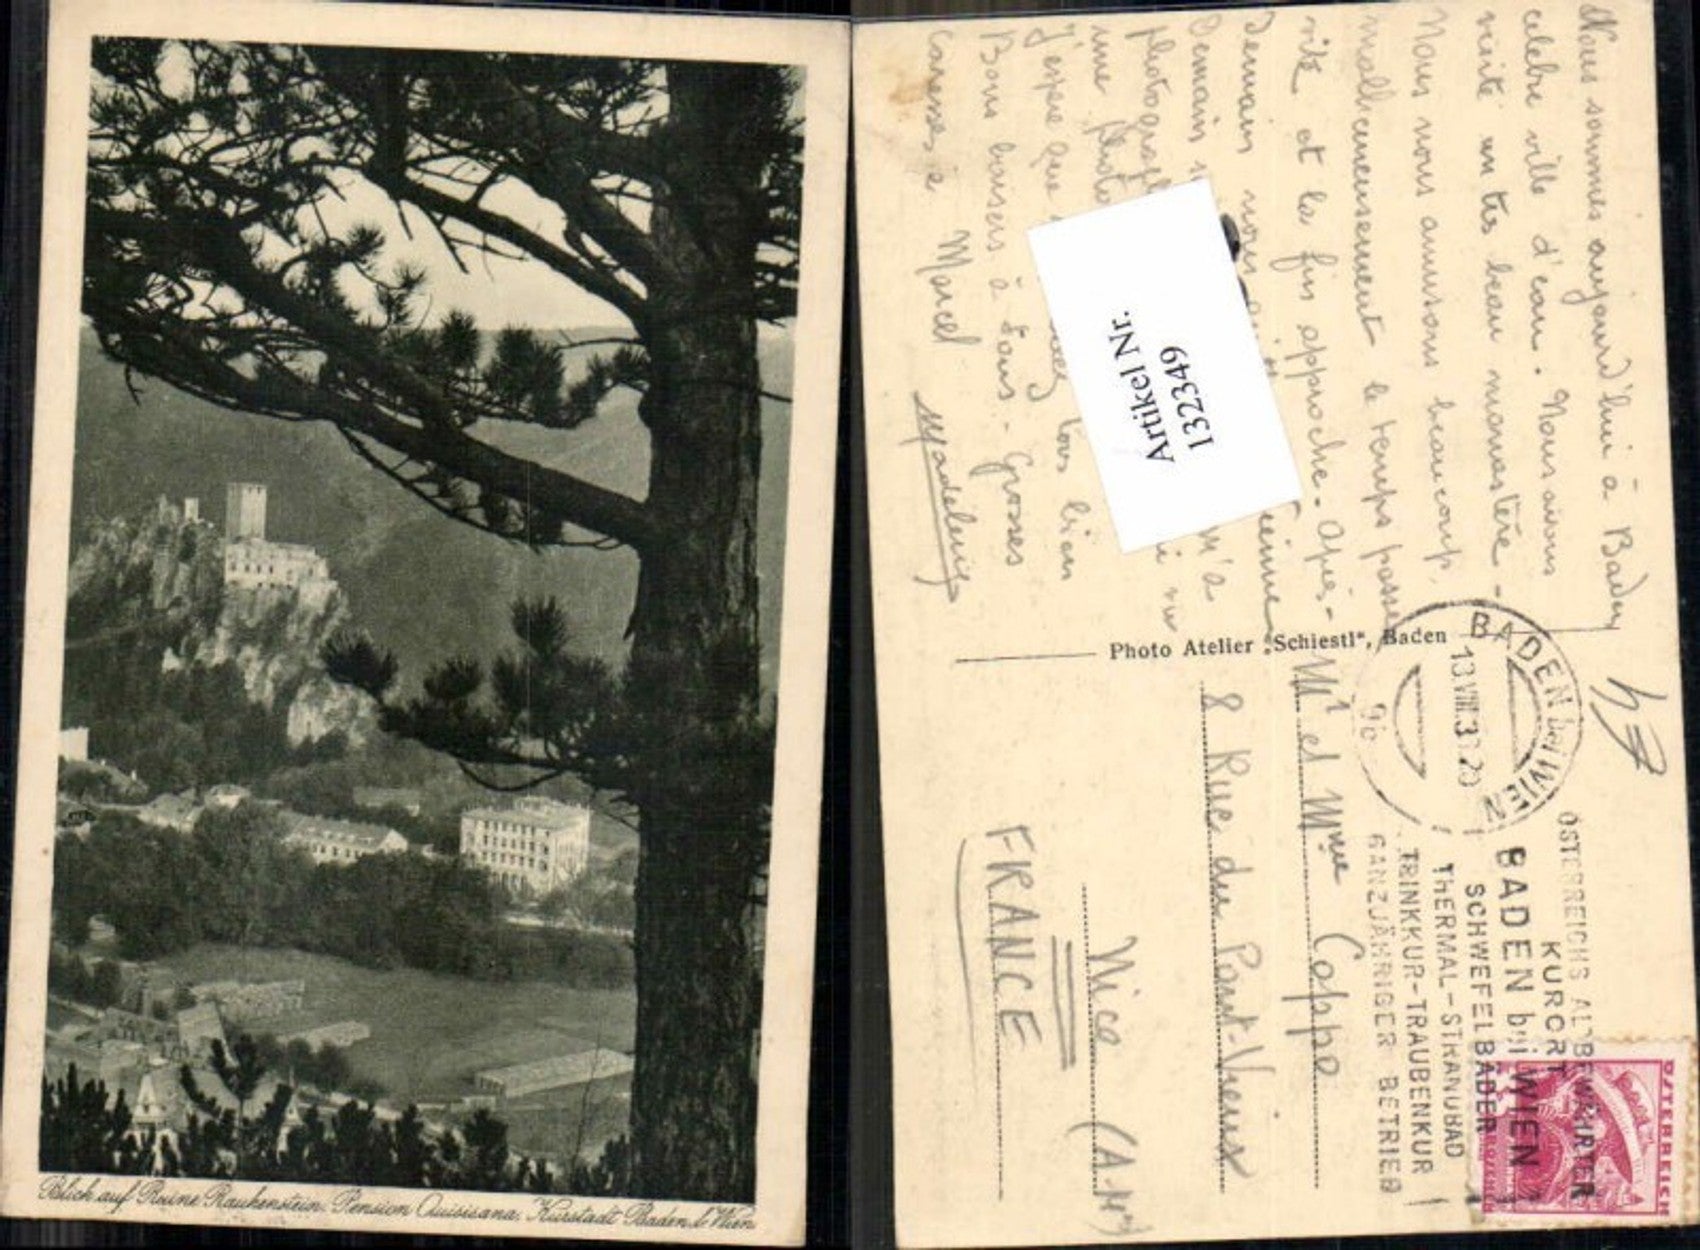 Blick auf Ruine Rauhenstein, Pension Quisisana, Kurstadt Baden b. Wien
Nous sommes aujourd'hui à Baden
celebre ville d'eau. Nous avons
visité un tres beau monastère -
Nous nous amusons beaucoup,
malheureusement le temps passe
vite et la fin approche. Après-
Demain nous Vienne
Demain
photograph
une photo
J'espère que tous bien
Bons baisers à tous. Grosses
caresses à Marcel
Madeleine
Artikel Nr.
132349
Photo Atelier „Schiestl“, Baden
BADEN bei WIEN
13.VIII.3 .20
9c
ÖSTERREICHS ALTBEWÄHRTER
KURORT
BADEN bei WIEN
SCHWEFELBÄDER
THERMAL-STRANDBAD
TRINKKUR-TRAUBENKUR
GANZJÄHRIGER BETRIEB
ÖSTERREICH
Mr et Mme Coppe
8 Rue du Pont-Vieux
Nice (A.M)
FRANCE